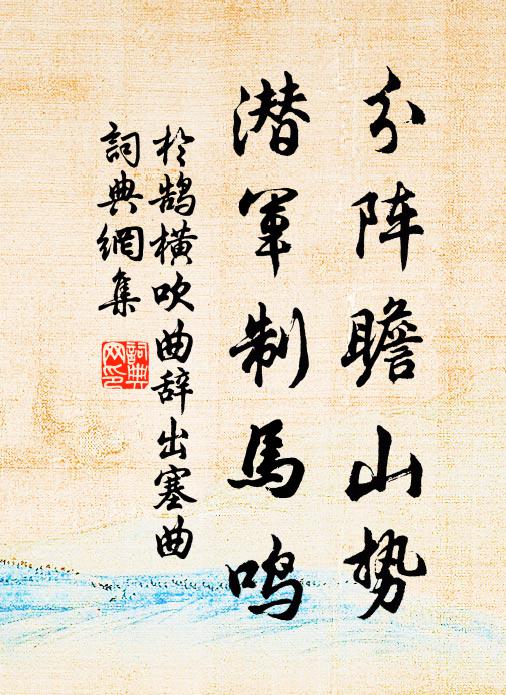 分阵瞻山势
潜军制马鸣
於鹄横吹曲辞出塞曲
詞典網集
詞典
网印